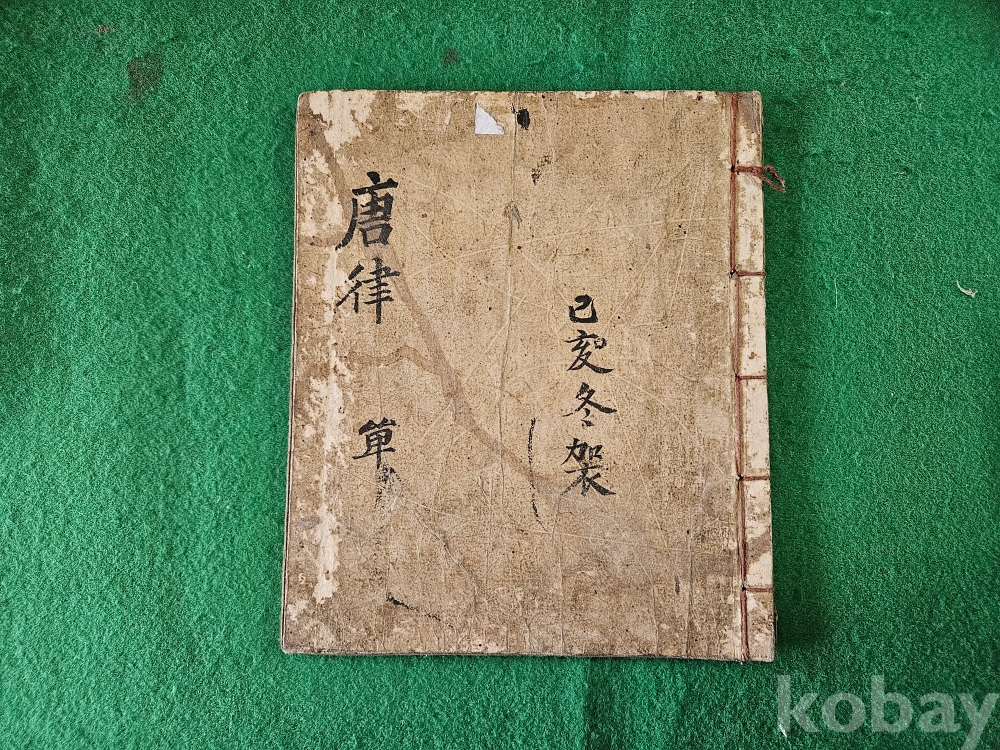 唐律
單
己亥冬袈
kobay